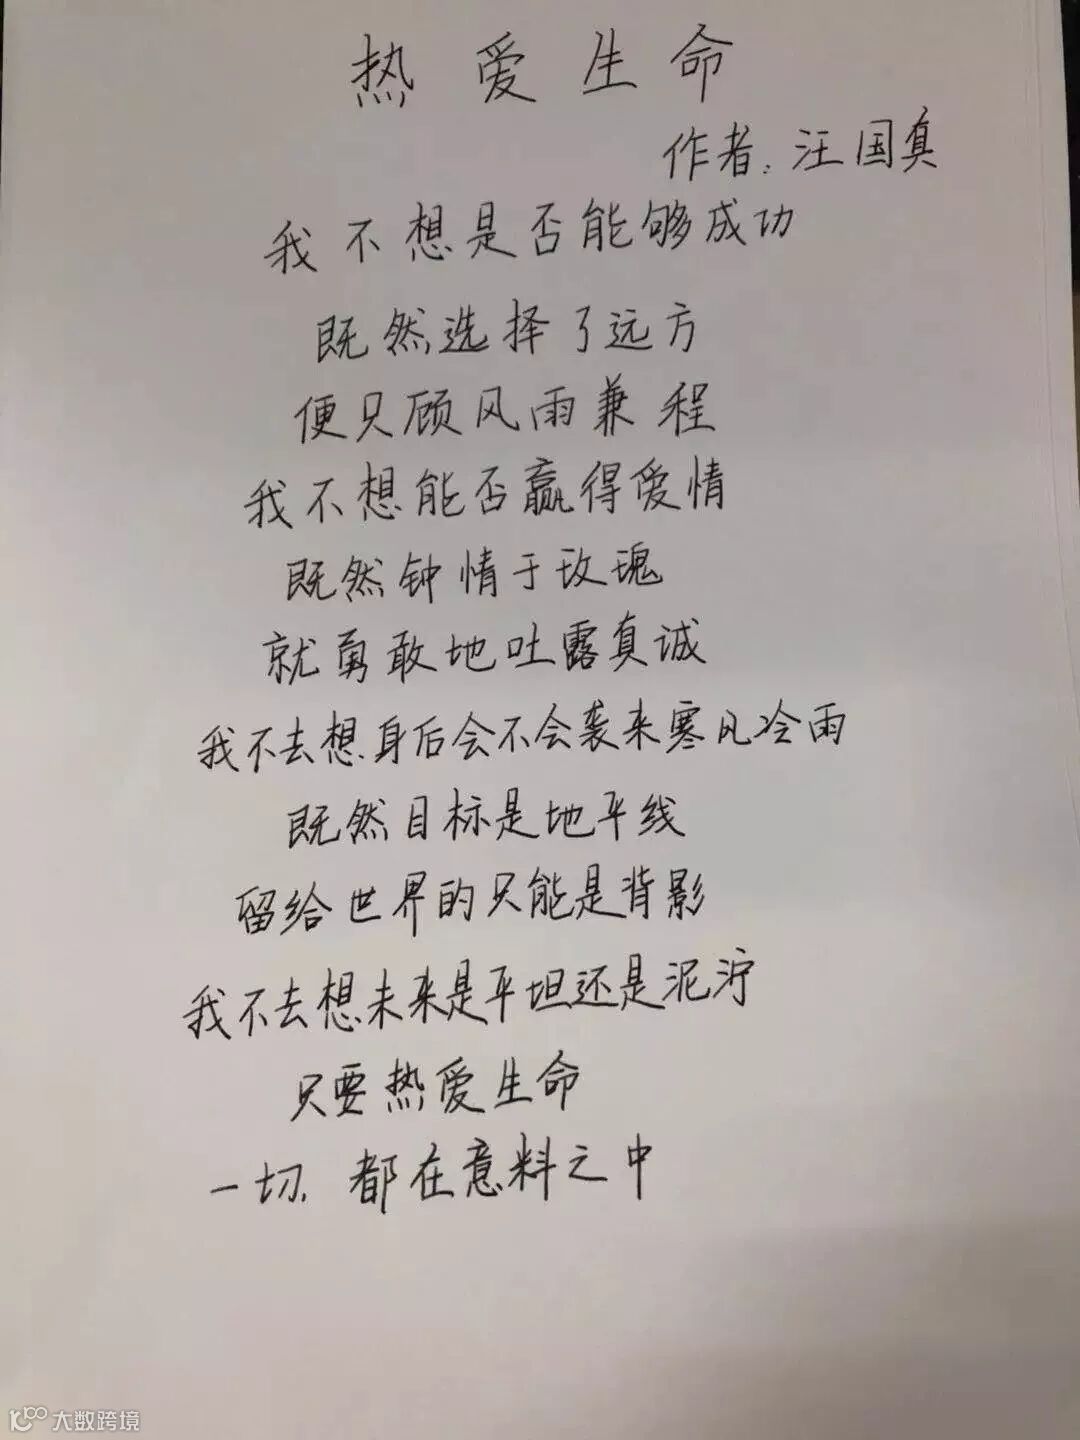 热爱生命
作者:汪国真
我不想是否能够成功
既然选择了远方
便只顾风雨兼程
我不想能否赢得爱情
既然钟情于玫瑰
就勇敢地吐露真诚
我不去想身后会不会袭来寒风冷雨
既然目标是地平线
留给世界的只能是背影
我不去想未来是平坦还是泥泞
只要热爱生命
一切,都在意料之中
大数跨境